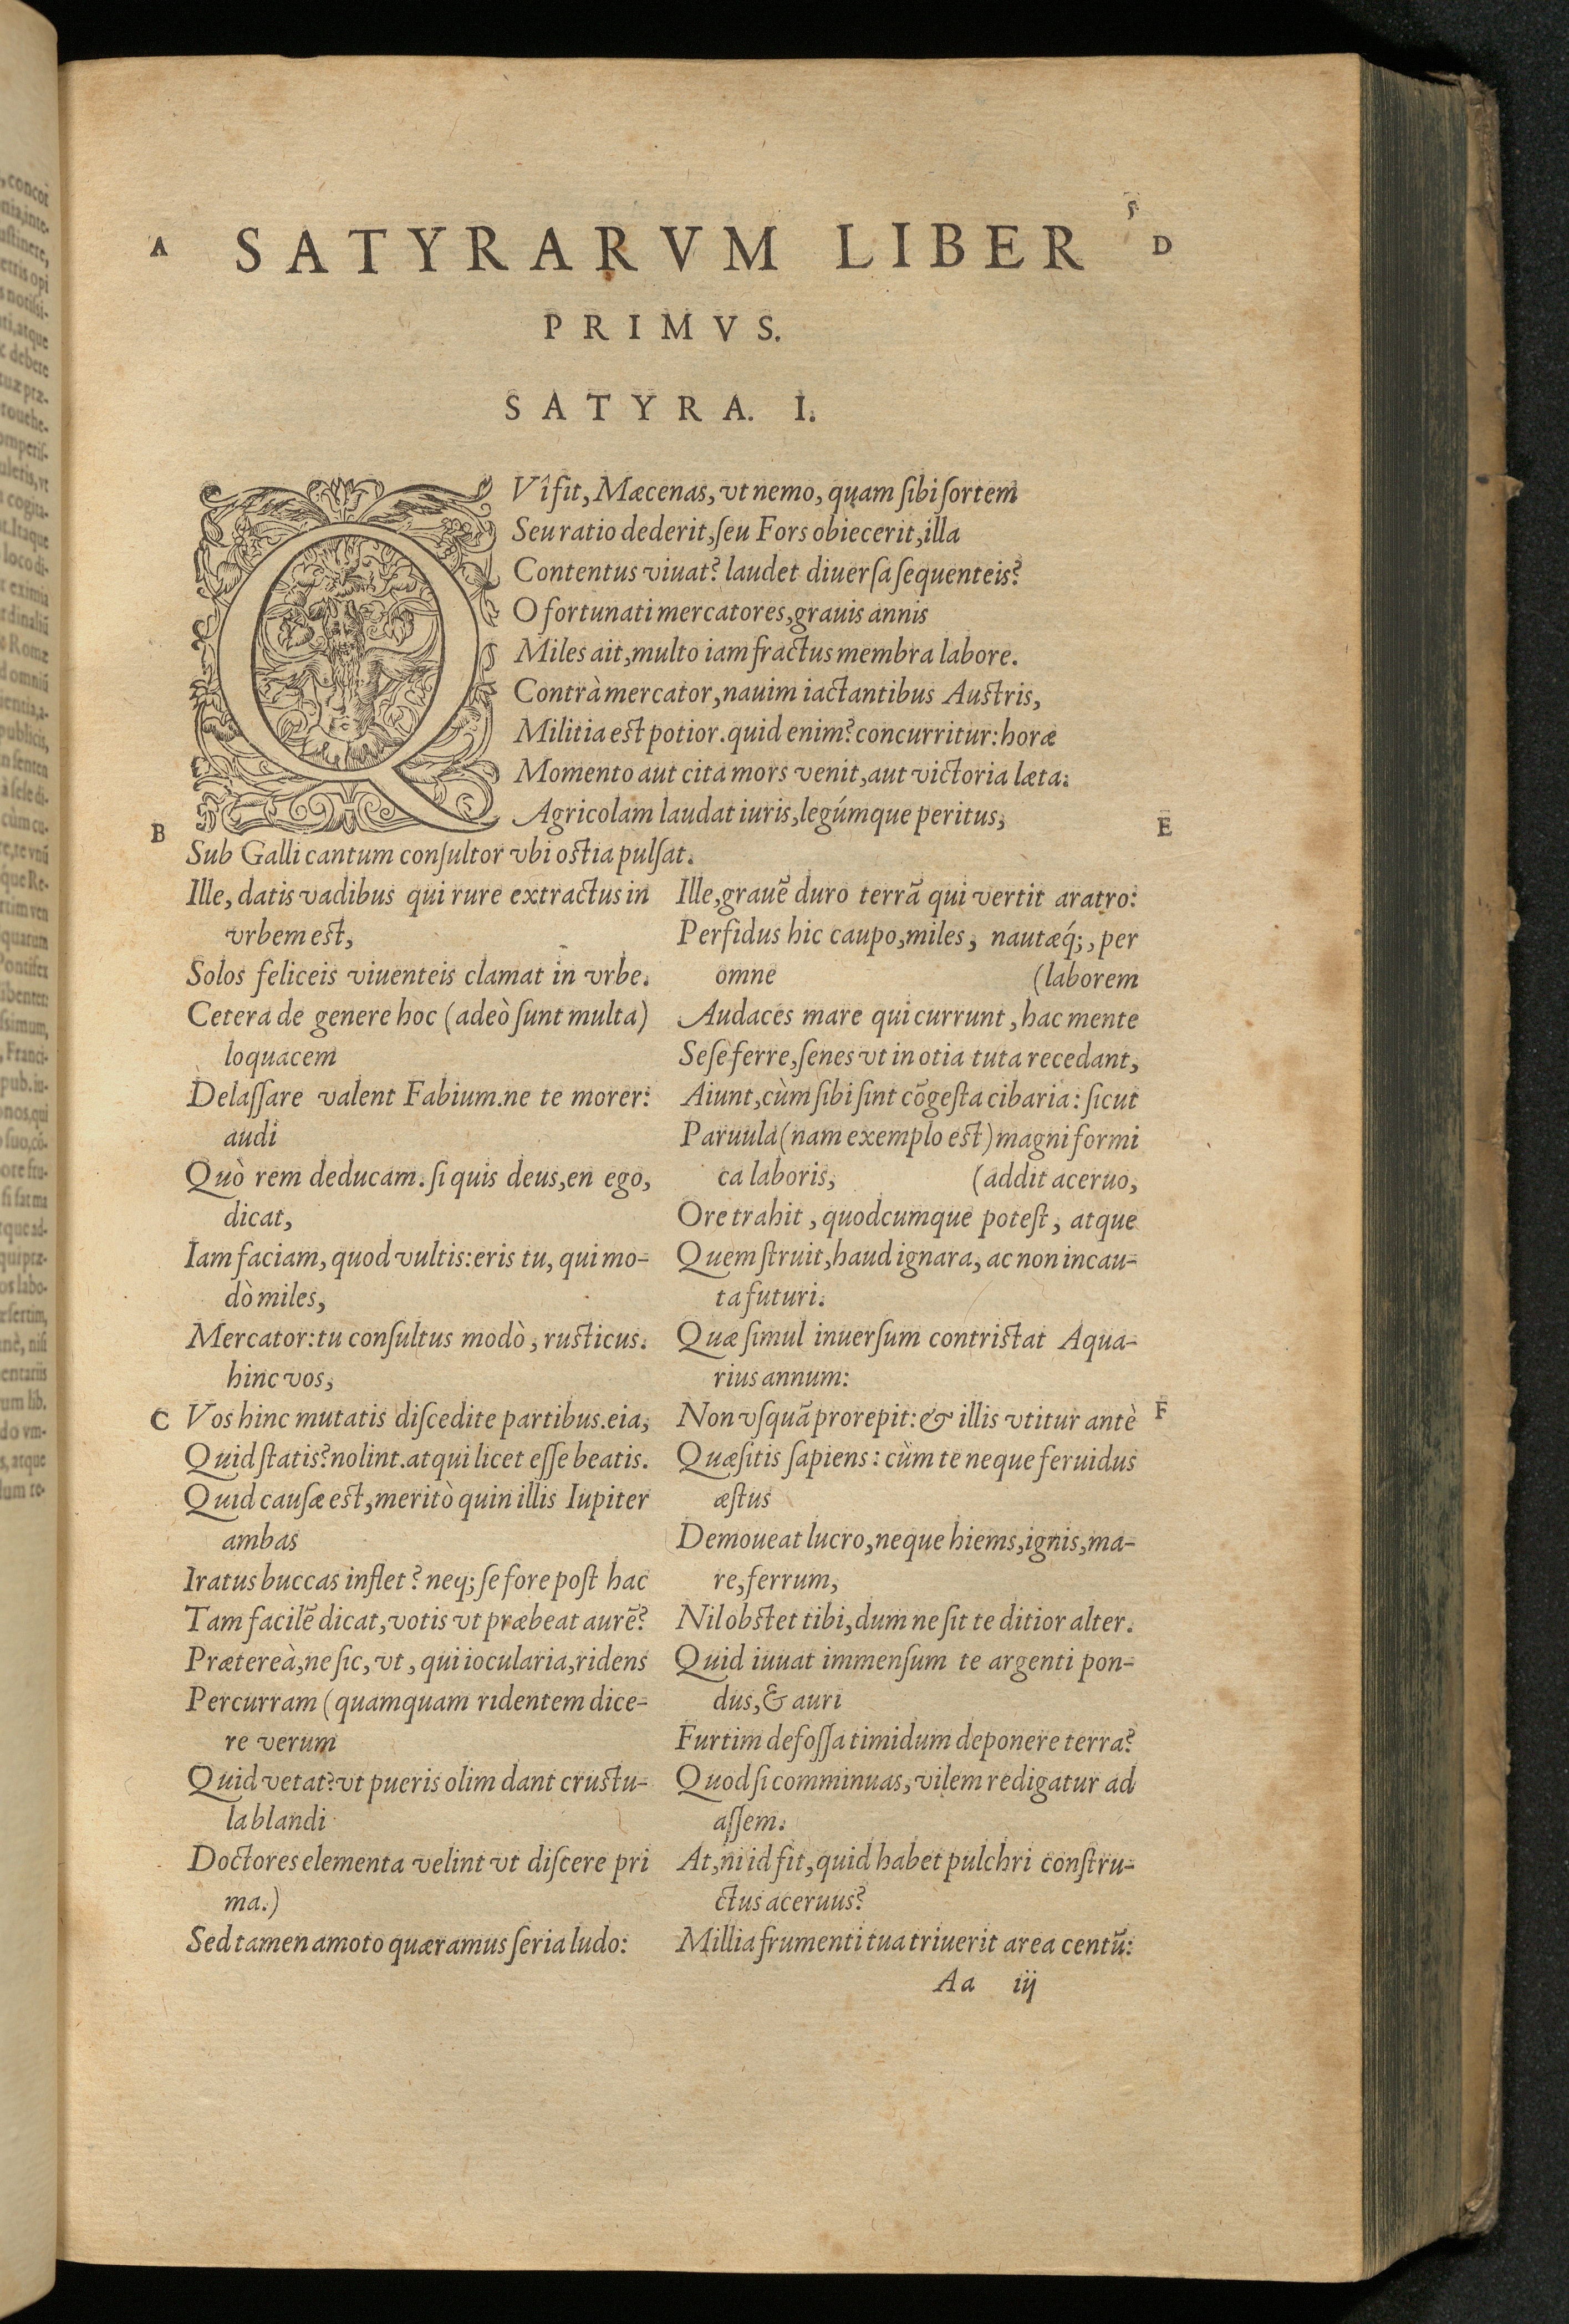 5
A SATYRARVM LIBER D
PRIMVS.
SATYRA. I.
QVî fit, Mæcenas, vt nemo, quam ſibi ſortem
Seu ratio dederit, ſeu Fors obiecerit, illa
Contentus viuat? laudet diuerſa ſequenteis?
O fortunati mercatores, grauis annis
Miles ait, multo iam fractus membra labore.
Contrà mercator, nauim iactantibus Auſtris,
Militia eſt potior. quid enim? concurritur: horæ
Momento aut cita mors venit, aut victoria læta.
Agricolam laudat iuris, legúmque peritus,
B
E
Sub Galli cantum conſultor vbi oſtia pulſat.
Ille, datis vadibus qui rure extractus in
vrbem eſt,
Solos feliceis viuenteis clamat in vrbe.
Cetera de genere hoc (adeò ſunt multa)
loquacem
Delaſſare valent Fabium. ne te morer:
audi
Quò rem deducam. ſi quis deus, en ego,
dicat,
Iam faciam, quod vultis: eris tu, qui mo-
dò miles,
Mercator: tu conſultus modò, ruſticus.
hinc vos,
C Vos hinc mutatis diſcedite partibus. eia,
Quid ſtatis? nolint. atqui licet eſſe beatis.
Quid cauſæ eſt, meritò quin illis Iupiter
ambas
Iratus buccas inflet? neq; ſe fore poſt hac
Tam facilē dicat, votis vt præbeat aurē?
Prætereà, ne ſic, vt, qui iocularia, ridens
Percurram (quamquam ridentem dice-
re verum
Quid vetat? vt pueris olim dant cruſtu-
la blandi
Doctores elementa velint vt diſcere pri
ma.)
Sed tamen amoto quæramus ſeria ludo:
Ille, grauē duro terrā qui vertit aratro:
Perfidus hic caupo, miles, nautæq́;, per
omne (laborem
Audaces mare qui currunt, hac mente
Seſe ferre, ſenes vt in otia tuta recedant,
Aiunt, cùm ſibi ſint cōgeſta cibaria: ſicut
Paruula (nam exemplo eſt) magni formi
ca laboris, (addit aceruo,
Ore trahit, quodcumque poteſt, atque
Quem ſtruit, haud ignara, ac non incau-
ta futuri.
Quæ ſimul inuerſum contriſtat Aqua-
rius annum:
Non vſquā prorepit: & illis vtitur antè F
Quæſitis ſapiens: cùm te neque feruidus
æſtus
Demoueat lucro, neque hiems, ignis, ma-
re, ferrum,
Nil obſtet tibi, dum ne ſit te ditior alter.
Quid iuuat immenſum te argenti pon-
dus, & auri
Furtim defoſſa timidum deponere terra?
Quod ſi comminuas, vilem redigatur ad
aſſem.
At, ni id fit, quid habet pulchri conſtru-
ctus aceruus?
Millia frumenti tua triuerit area centū:
Aa iij